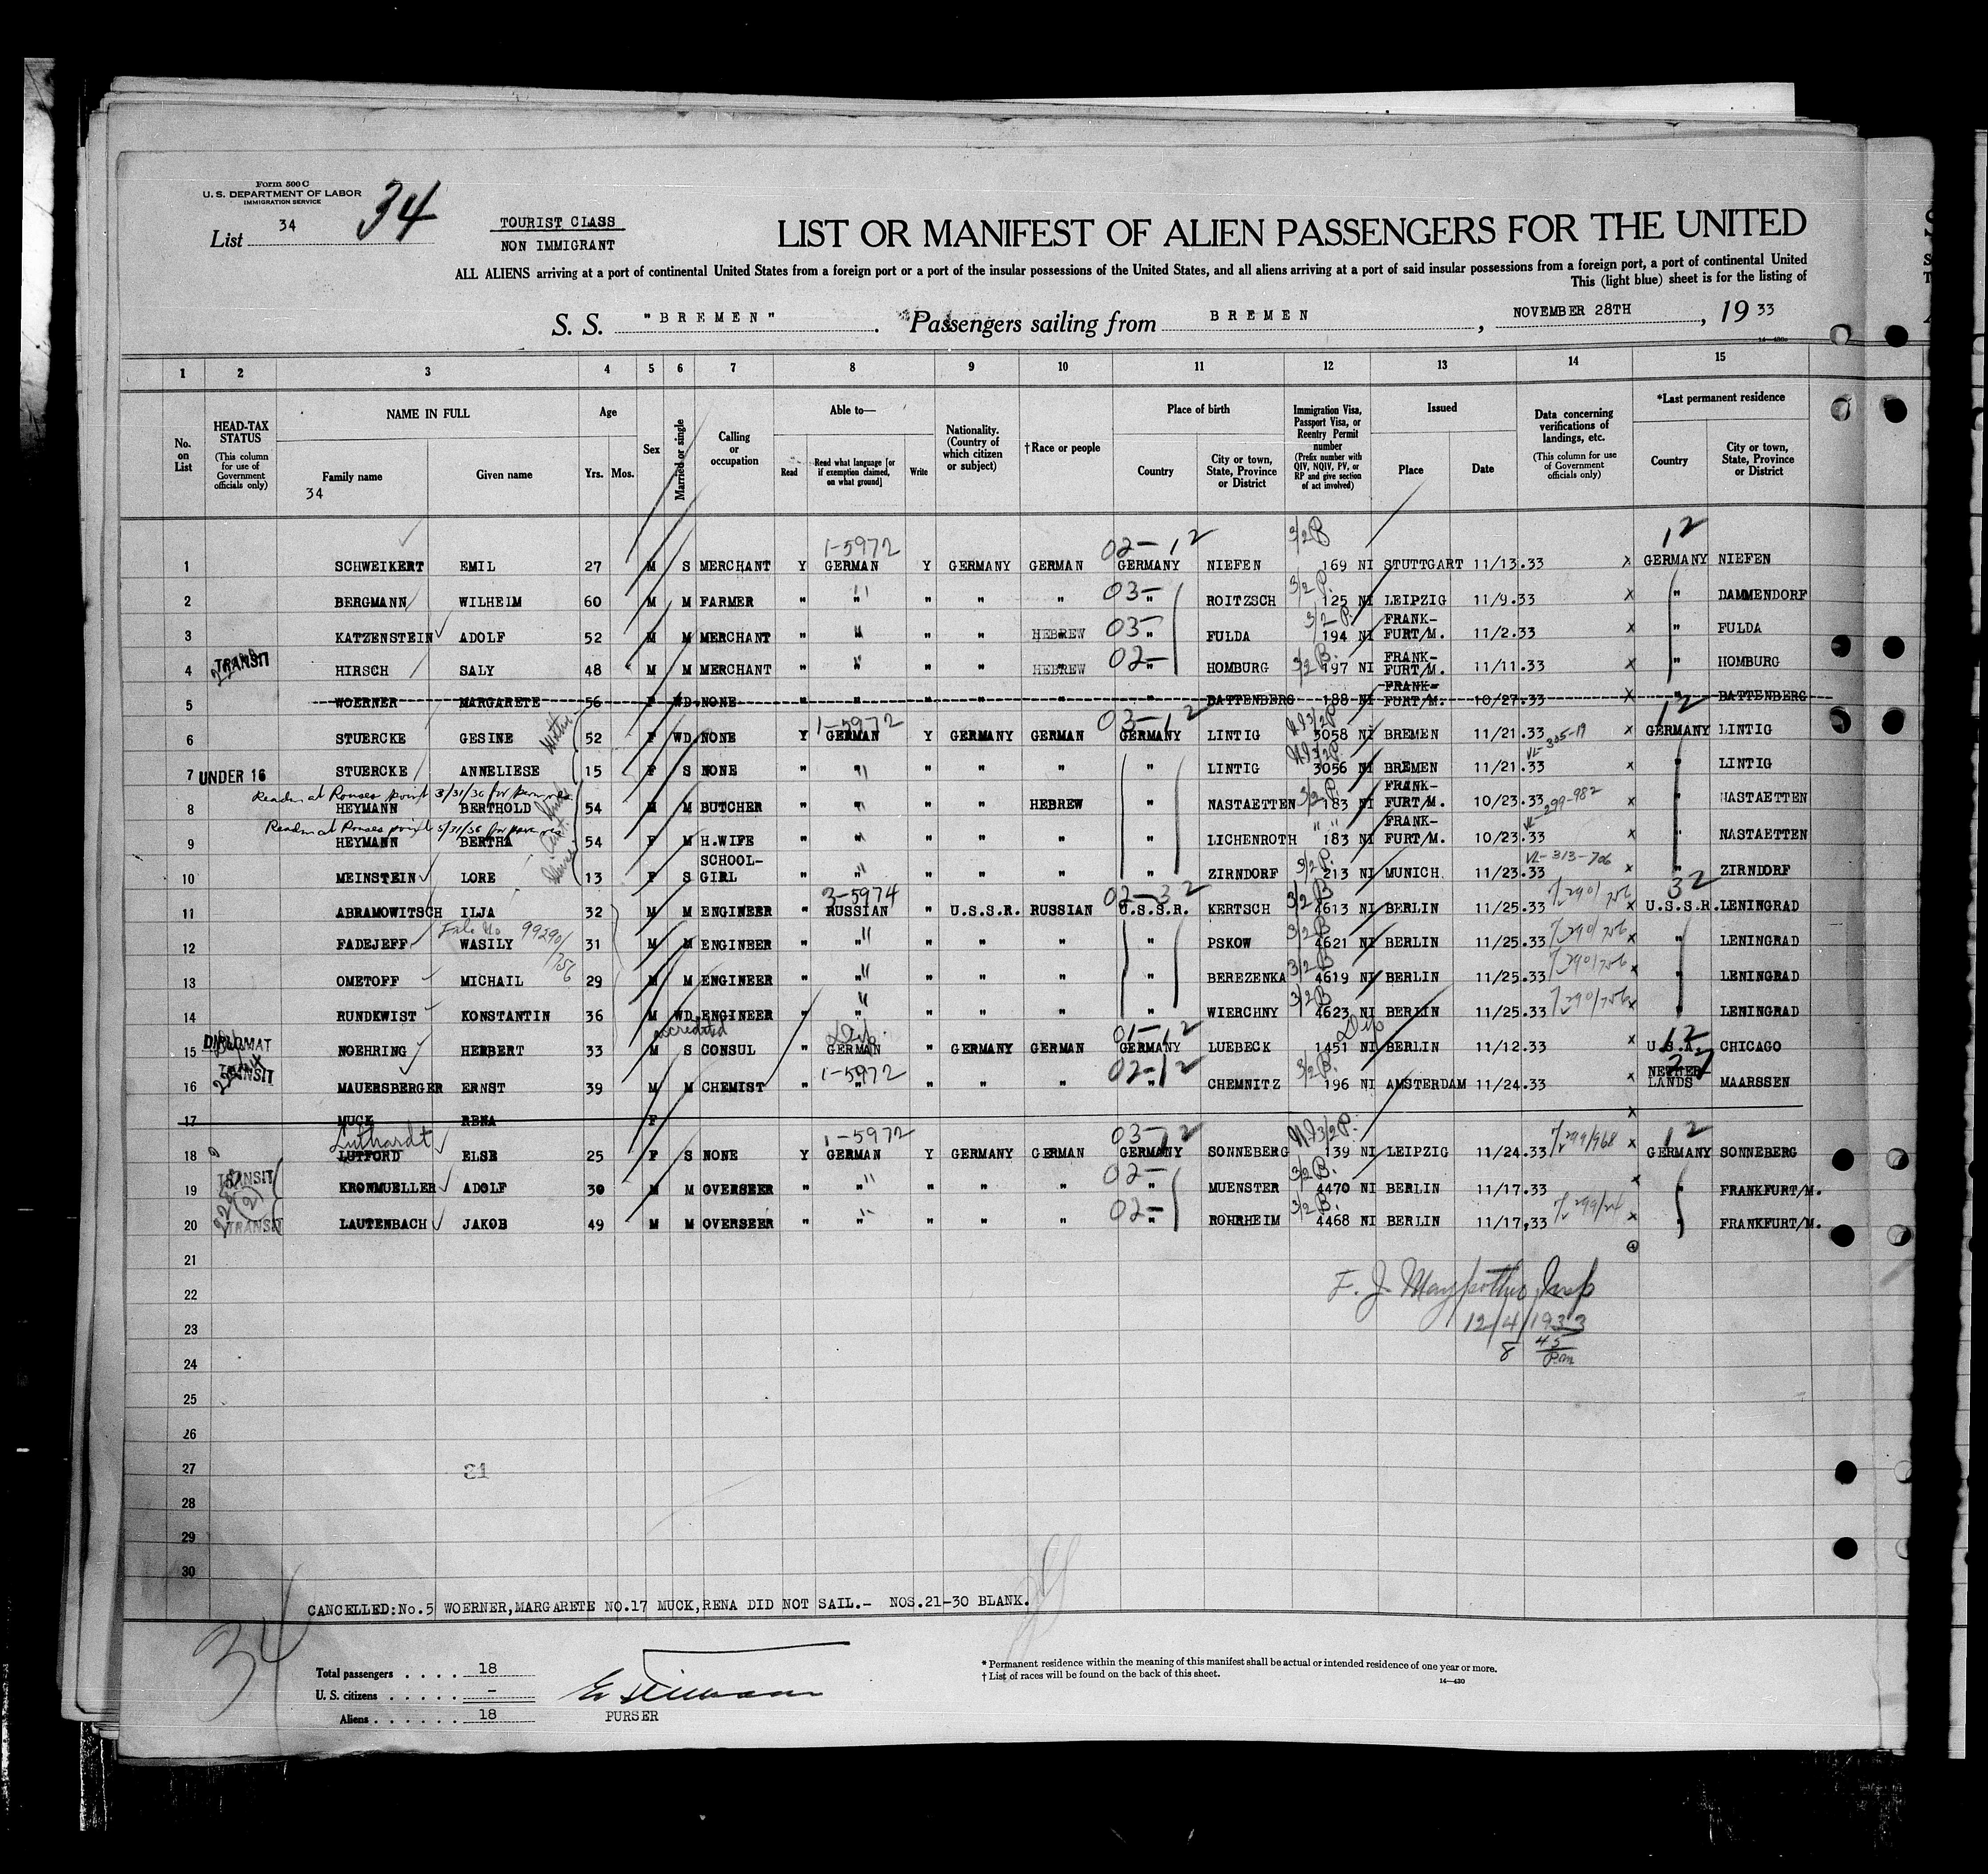 Form 500 C
U. S. DEPARTMENT OF LABOR
IMMIGRATION SERVICE
List 34 34
TOURIST CLASS
NON IMMIGRANT
LIST OR MANIFEST OF ALIEN PASSENGERS FOR THE UNITED
ALL ALIENS arriving at a port of continental United States from a foreign port or a port of the insular possessions of the United States, and all aliens arriving at a port of said insular possessions from a foreign port, a port of continental United
This (light blue) sheet is for the listing of
S. S. "BREMEN" . Passengers sailing from BREMEN , NOVEMBER 28TH , 19 33
1 2 3 4 5 6 7 8 9 10 11 12 13 14 15
No. on List
HEAD-TAX STATUS (This column for use of Government officials only)
NAME IN FULL
Family name
Given name
34
Age
Yrs. Mos.
Sex
Married or single
Calling or occupation
Able to—
Read
Read what language [or if exemption claimed, on what ground]
Write
Nationality. (Country of which citizen or subject)
†Race or people
Place of birth
Country
City or town, State, Province or District
Immigration Visa, Passport Visa, or Reentry Permit number (Prefix number with QIV, NQIV, PV, or RP and give section of act involved)
Issued
Place
Date
Data concerning verifications of landings, etc. (This column for use of Government officials only)
*Last permanent residence
Country
City or town, State, Province or District
1-5972 02-12 3/2B 12
1 SCHWEIKERT EMIL 27 M S MERCHANT Y GERMAN Y GERMANY GERMAN GERMANY NIEFEN 169 NI STUTTGART 11/13.33 x GERMANY NIEFEN
2 BERGMANN WILHELM 60 M M FARMER " " " " " 03- " ROITZSCH 3/2P. 125 NI LEIPZIG 11/9.33 x " DAMMENDORF
3 KATZENSTEIN ADOLF 52 M M MERCHANT " " " " HEBREW 03- " FULDA 3/2P. 194 NI FRANK-FURT/M. 11/2.33 x " FULDA
4 TRANSIT HIRSCH SALY 48 M M MERCHANT " " " " HEBREW 02- " HOMBURG 3/2B. 197 NI FRANK-FURT/M. 11/11.33 x " HOMBURG
5 WOERNER MARGARETE 56 F WD NONE " " " " " " BATTENBERG 188 NI FRANK-FURT/M. 10/27.33 x " BATTENBERG
1-5972 03-12 12
6 STUERCKE GESINE 52 F WD NONE Y GERMAN Y GERMANY GERMAN GERMANY LINTIG 3058 NI BREMEN 11/21.33 x GERMANY LINTIG
7 UNDER 16 STUERCKE ANNELIESE 15 F S NONE " " " " " " LINTIG 3056 NI BREMEN 11/21.33 x " LINTIG
8 HEYMANN BERTHOLD 54 M M BUTCHER " " " " HEBREW " NASTAETTEN 3/2P. 183 NI FRANK-FURT/M. 10/23.33 x " NASTAETTEN
9 HEYMANN BERTHA 54 F M H.WIFE " " " " " " LICHENROTH 183 NI FRANK-FURT/M. 10/23.33 x " NASTAETTEN
10 MEINSTEIN LORE 13 F S SCHOOL-GIRL " " " " " " ZIRNDORF 3/2P. 213 NI MUNICH 11/23.33 VL-313-706 x " ZIRNDORF
3-5974 02-32 3/2B 32
11 ABRAMOWITSCH ILJA 32 M M ENGINEER " RUSSIAN " U.S.S.R. RUSSIAN U.S.S.R. KERTSCH 4613 NI BERLIN 11/25.33 U.S.S.R. LENINGRAD
File No 99290/756
12 FADEJEFF WASILY 31 M M ENGINEER " " " " " " PSKOW 3/2B 4621 NI BERLIN 11/25.33 x " LENINGRAD
13 OMETOFF MICHAIL 29 M M ENGINEER " " " " " " BEREZENKA 3/2B 4619 NI BERLIN 11/25.33 x " LENINGRAD
14 RUNDKWIST KONSTANTIN 36 M WD ENGINEER " " " " " " WIERCHNY 3/2B 4623 NI BERLIN 11/25.33 x " LENINGRAD
accredited Dip. 01-12 Dip 12
15 DIPLOMAT NOEHRING HERBERT 33 M S CONSUL " GERMAN " GERMANY GERMAN GERMANY LUEBECK 1451 NI BERLIN 11/12.33 x U.S.A. CHICAGO
1-5972 02-12 3/2B. 27
16 TRANSIT MAUERSBERGER ERNST 39 M M CHEMIST " " " " " " CHEMNITZ 196 NI AMSTERDAM 11/24.33 x NETHER-LANDS MAARSSEN
17 MUCK RENA F x
Luthardt 1-5972 03-12 12
18 LUTFORD ELSE 25 F S NONE Y GERMAN Y GERMANY GERMAN GERMANY SONNEBERG 139 NI LEIPZIG 11/24.33 x GERMANY SONNEBERG
19 TRANSIT KRONMUELLER ADOLF 30 M M OVERSEER " " " " " 02- " MUENSTER 3/2B. 4470 NI BERLIN 11/17.33 x " FRANKFURT/M.
20 TRANSIT LAUTENBACH JAKOB 49 M M OVERSEER " " " " " 02- " ROHRHEIM 3/2B. 4468 NI BERLIN 11/17,33 x " FRANKFURT/M.
21
22
23 12/4/1933
24 8 45 P.m
25
26
27
28
29
30
CANCELLED:No.5 WOERNER,MARGARETE NO.17 MUCK,RENA DID NOT SAIL.- NOS.21-30 BLANK.
34
Total passengers . . . . 18
U. S. citizens . . . . . -
Aliens . . . . . . 18
PURSER
* Permanent residence within the meaning of this manifest shall be actual or intended residence of one year or more.
† List of races will be found on the back of this sheet.
14—430